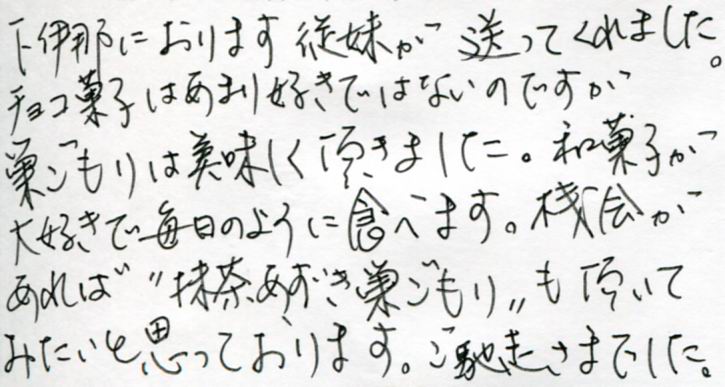 下伊那におります従妹が送ってくれました。
チョコ菓子はあまり好きではないのですが
巣ごもりは美味しく頂きました。和菓子が
大好きで毎日のように食べます。機会が
あれば〝抹茶あずき巣ごもり〟も頂いて
みたいと思っております。ご馳走さまでした。